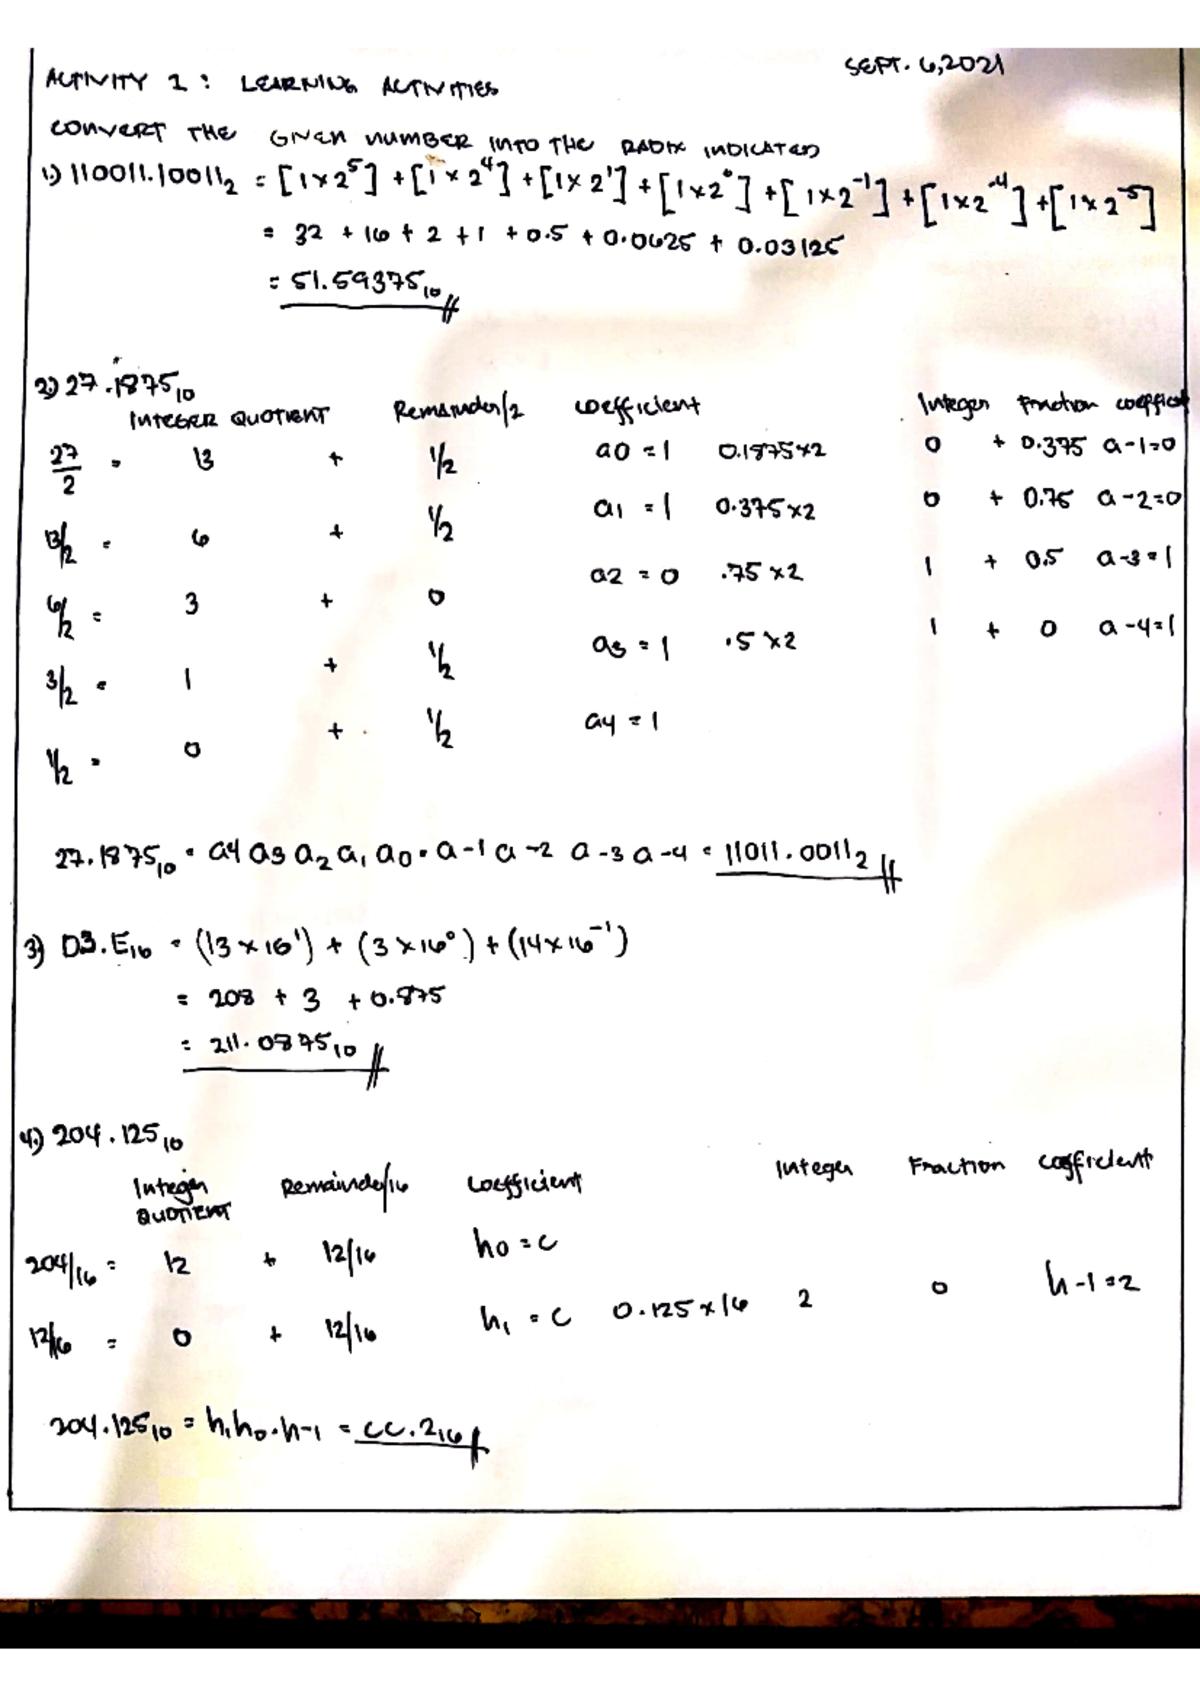 SEPT. 6, 2021
ACTIVITY 1 : LEARNING ACTIVITIES
CONVERT THE GIVEN NUMBER INTO THE RADIX INDICATED
1.) 110011.10011₂ = [1 × 2⁵] + [1 × 2⁴] + [1 × 2¹] + [1 × 2⁰] + [1 × 2⁻¹] + [1 × 2⁻⁴] + [1 × 2⁻⁵]
= 32 + 16 + 2 + 1 + 0.5 + 0.0625 + 0.03125
= 51.59375₁₀
2.) 27.1875₁₀
INTEGER QUOTIENT Remainder/2 coefficient Integer Fraction coefficient
27/2 = 13 + 1/2 a0 = 1 0.1875 × 2 0 + 0.375 a-1=0
13/2 = 6 + 1/2 a1 = 1 0.375 × 2 0 + 0.75 a-2=0
6/2 = 3 + 0 a2 = 0 .75 × 2 1 + 0.5 a-3=1
3/2 = 1 + 1/2 a3 = 1 .5 × 2 1 + 0 a-4=1
1/2 = 0 + 1/2 a4 = 1
27.1875₁₀ = a4 a3 a2 a1 a0 . a-1 a-2 a-3 a-4 = 11011.0011₂
3) D3.E₁₆ = (13 × 16¹) + (3 × 16⁰) + (14 × 16⁻¹)
= 208 + 3 + 0.875
= 211.0875₁₀
4.) 204.125₁₀
Integer QUOTIENT Remainder/16 Coefficient Integer Fraction coefficient
204/16 = 12 + 12/16 h0 = C
12/16 = 0 + 12/16 h1 = C 0.125 × 16 2 0 h-1=2
204.125₁₀ = h1 h0 . h-1 = CC.2₁₆